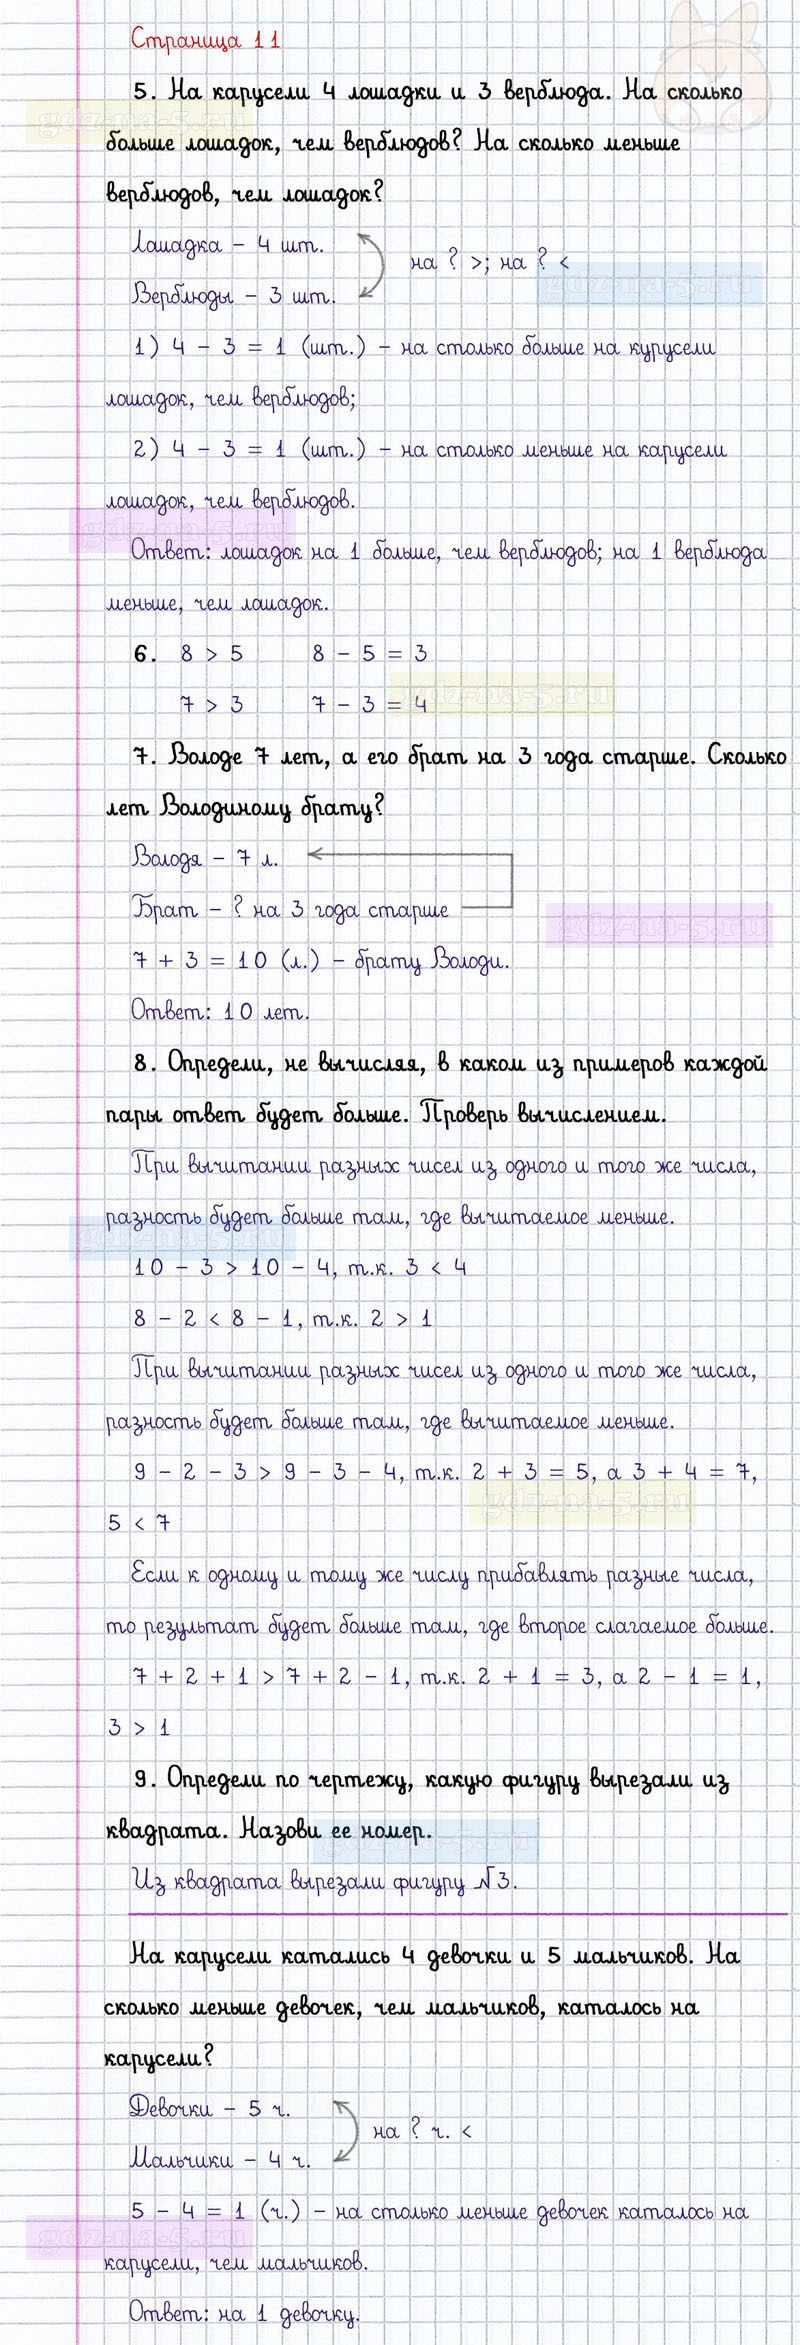 Страница 11
5. На карусели 4 лошадки и 3 верблюда. На сколько
больше лошадок, чем верблюдов? На сколько меньше
верблюдов, чем лошадок?
Лошадка – 4 шт.
на ? >; на ? <
gdz-na-5.ru
Верблюды – 3 шт.
gdz-na-5.ru
1) 4 – 3 = 1 (шт.) – на столько больше на курусели
лошадок, чем верблюдов;
2) 4 – 3 = 1 (шт.) – на столько меньше на карусели
лошадок, чем верблюдов.
gdz-na-5.ru
Ответ: лошадок на 1 больше, чем верблюдов; на 1 верблюда
меньше, чем лошадок.
6. 8 > 5 8 – 5 = 3
gdz-na-5.ru
7 > 3 7 – 3 = 4
7. Володе 7 лет, а его брат на 3 года старше. Сколько
лет Володиному брату?
Володя – 7 л.
Брат – ? на 3 года старше
gdz-na-5.ru
7 + 3 = 10 (л.) – брату Володи.
Ответ: 10 лет.
8. Определи, не вычисляя, в каком из примеров каждой
пары ответ будет больше. Проверь вычислением.
При вычитании разных чисел из одного и того же числа,
разность будет больше там, где вычитаемое меньше.
gdz-na-5.ru
10 – 3 > 10 – 4, т.к. 3 < 4
8 – 2 < 8 – 1, т.к. 2 > 1
При вычитании разных чисел из одного и того же числа,
разность будет больше там, где вычитаемое меньше.
9 – 2 – 3 > 9 – 3 – 4, т.к. 2 + 3 = 5, а 3 + 4 = 7,
gdz-na-5.ru
5 < 7
Если к одному и тому же числу прибавлять разные числа,
то результат будет больше там, где второе слагаемое больше.
7 + 2 + 1 > 7 + 2 – 1, т.к. 2 + 1 = 3, а 2 – 1 = 1,
3 > 1
9. Определи по чертежу, какую фигуру вырезали из
квадрата. Назови ее номер.
gdz-na-5.ru
Из квадрата вырезали фигуру №3.
На карусели катались 4 девочки и 5 мальчиков. На
сколько меньше девочек, чем мальчиков, каталось на
карусели?
Девочки – 5 ч.
на ? ч. <
Мальчики – 4 ч.
5 – 4 = 1 (ч.) – на столько меньше девочек каталось на
gdz-na-5.ru
карусели, чем мальчиков.
Ответ: на 1 девочку.